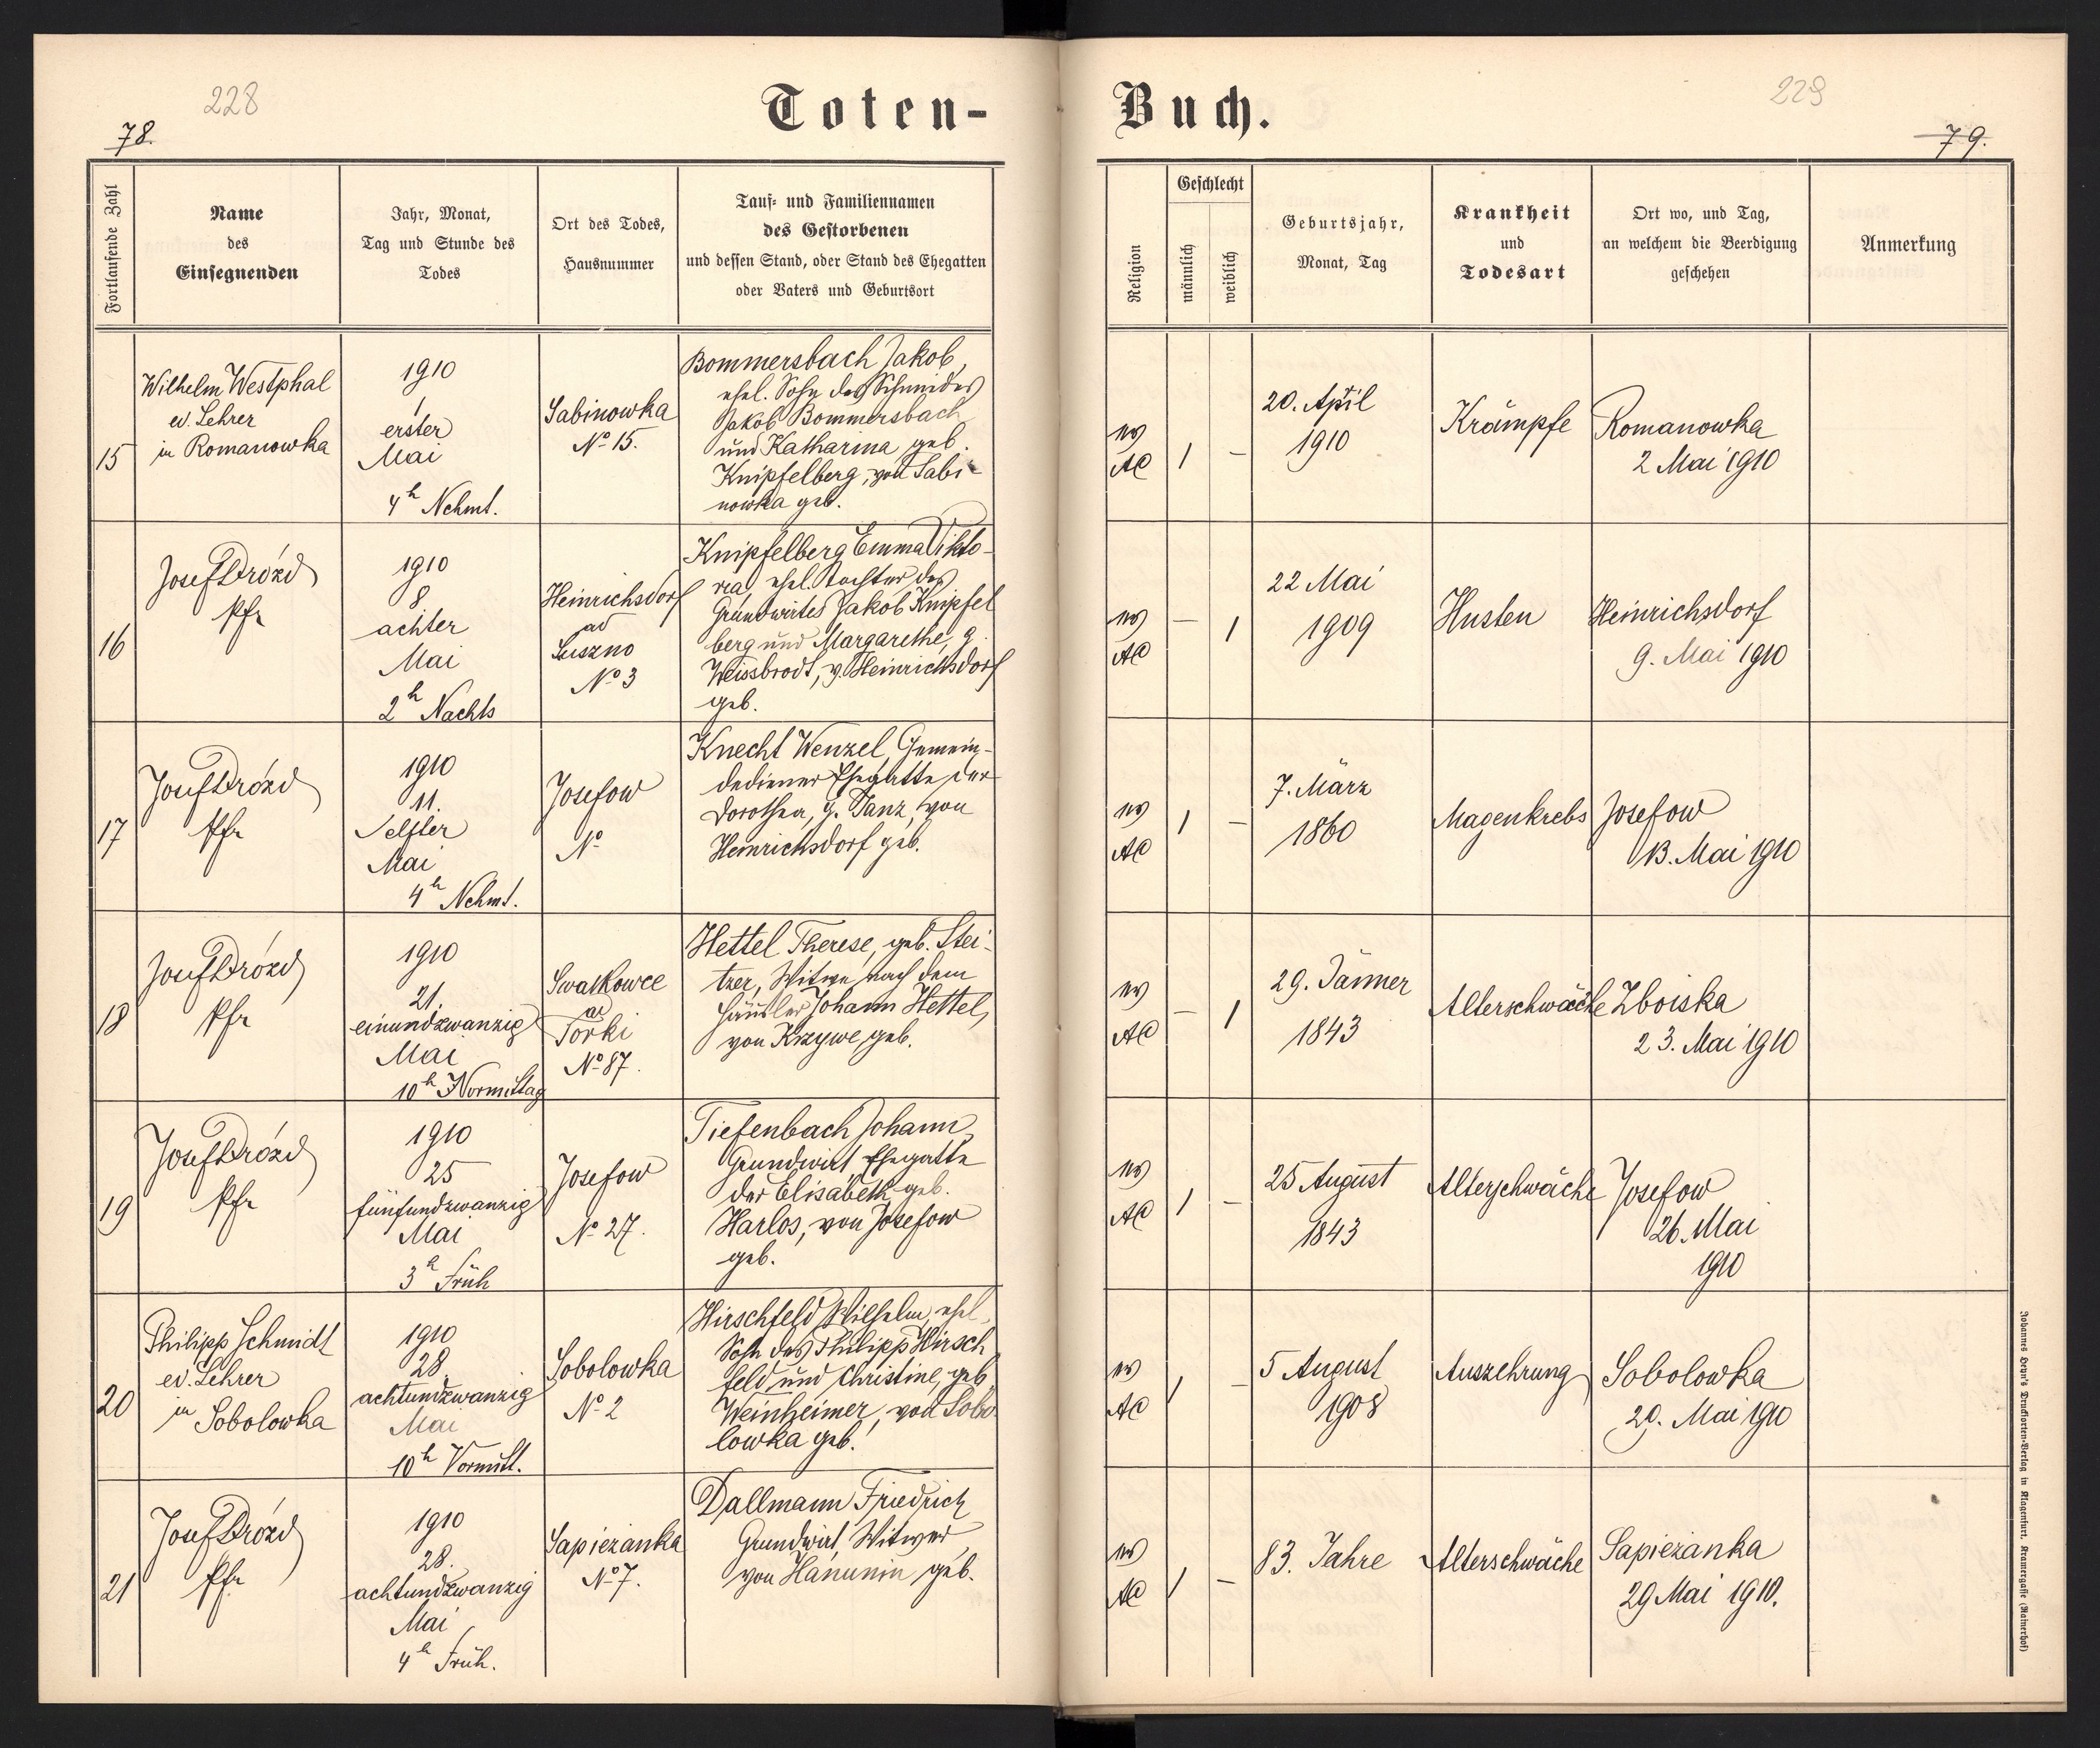 228
78.
Toten-
Buch.
229
79.
Fortlaufende Zahl
Name
des
Einsegnenden
Jahr, Monat,
Tag und Stunde des
Todes
Ort des Todes,
Hausnummer
Tauf- und Familiennamen
des Gestorbenen
und dessen Stand, oder Stand des Ehegatten
oder Vaters und Geburtsort
Religion
Geschlecht
männlich
weiblich
Geburtsjahr,
Monat, Tag
Krankheit
und
Todesart
Ort wo, und Tag,
an welchem die Beerdigung
geschehen
Anmerkung
15
Wilhelm Westphal
ev. Lehrer
in Romanowka
1910
1
erster
Mai
4h Nchmt.
Sabinowka
No 15.
Bommersbach Jakob,
ehel. Sohn des Schmides
Jakob Bommersbach
und Katharina geb.
Knipfelberg, von Sabi-
nowka geb.
ev
AC
1
–
20. April
1910
Krämpfe
Romanowka
2 Mai 1910
16
Josef Drózd
Pfr
1910
8
achter
Mai
2h Nachts
Heinrichsdorf
ad
Suszno
No 3
Knipfelberg Emma Vikto-
ria, ehel. Tochter des
Grundwirtes Jakob Knipfel
berg und Margarethe, g.
Weissbrodt, v. Heinrichsdorf
geb.
ev
AC
–
1
22 Mai
1909
Husten
Heinrichsdorf
9. Mai 1910
17
Josef Drózd
Pfr
1910
11.
elfter
Mai
4h Nchmt.
Josefow
No
Knecht Wenzel, Gemein-
dediener Ehegatte der
Dorothea, g. Tanz, von
Heinrichsdorf geb.
ev
AC
1
–
7. März
1860
Magenkrebs
Josefow
13. Mai 1910
18
Josef Drózd
Pfr
1910
21.
einundzwanzig
Mai
10h Vormittag
Swatkowce
ad
Torki
No 87.
Hettel Therese, geb. Stei-
tzer, Witwe nach dem
Häusler Johann Hettel,
von Krzywe, geb.
ev
AC
–
1
29. Jänner
1843
Alterschwäche
Zboiska
23. Mai 1910
19
Josef Drózd
Pfr
1910
25
fünfundzwanzig
Mai
3h Früh
Josefow
No 27.
Tiefenbach Johann,
Grundwirt Ehegatte
der Elisabeth geb.
Harlos, von Josefow
geb.
ev
AC
1
–
25 August
1843
Alterschwäche
Josefow
26. Mai
1910
20
Philipp Schmidt
ev. Lehrer
in Sobolowka
1910
28.
achtundzwanzig
Mai
10h Vormitt.
Sobolowka
No 2
Hirschfeld Wilhelm, ehel.
Sohn des Philipp Hirsch
feld und Christine, geb
Weinheimer, von Sobo-
lowka geb.
ev
AC
1
–
5 August
1908
Auszehrung
Sobolowka
29. Mai 1910
21
Josef Drózd
Pfr
1910
28.
achtundzwanzig
Mai
4h Früh.
Sapiezanka
No 7.
Dallmann Friedrich
Grundwirt, Witwer,
von Hanunin geb.
ev
AC
1
–
83. Jahre
Alterschwäche
Sapiezanka
29 Mai 1910.
Johannes Heyn's Drucksorten-Verlag in Klagenfurt, Kramergasse (Rainerhof)